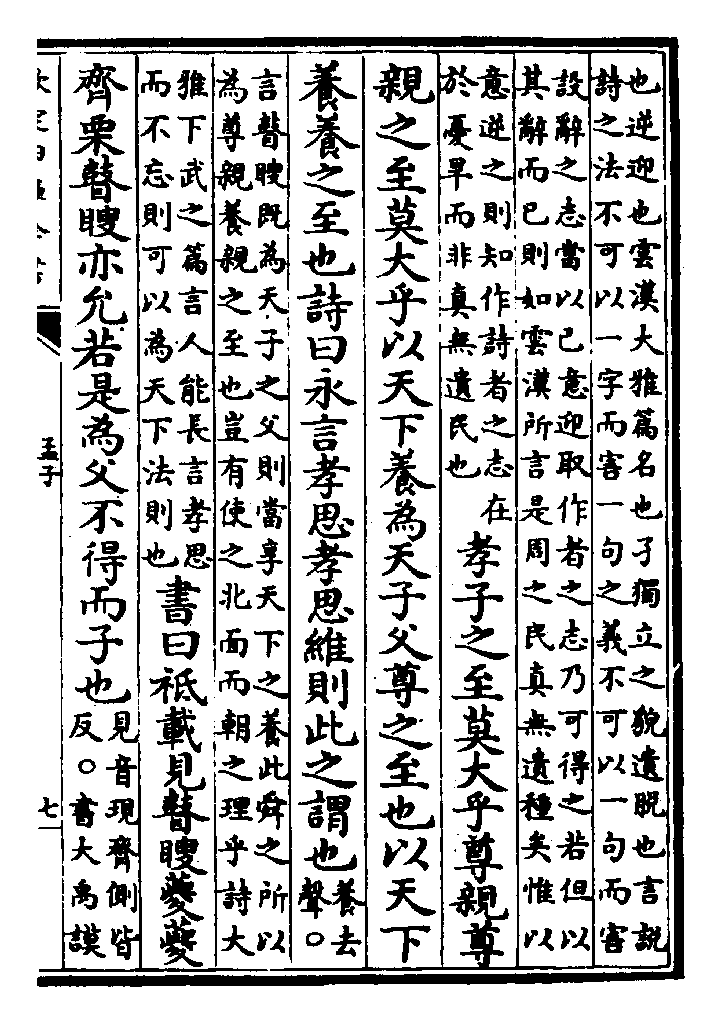 也逆迎也雲漢大雅篇名也孑獨立之貌遺脫也言說
詩之法不可以一字而害一句之義不可以一句而害
設辭之志當以已意迎取作者之志乃可得之若但以
其辭而已則如雲漢所言是周之民真無遺種矣惟以
意逆之則知作詩者之志在
於憂旱而非真無遺民也
孝子之至莫大乎尊親尊
親之至莫大乎以天下養為天子父尊之至也以天下
養養之至也詩曰永言孝思孝思維則此之謂也
養去
聲○
言瞽瞍既為天子之父則當享天下之養此舜之所以
為尊親養親之至也豈有使之北面而朝之理乎詩大
雅下武之篇言人能長言孝思
而不忘則可以為天下法則也
書曰祗載見瞽瞍夔夔
齊栗瞽瞍亦允若是為父不得而子也
見音現齊側皆
反○書大禹謨
孟子
七